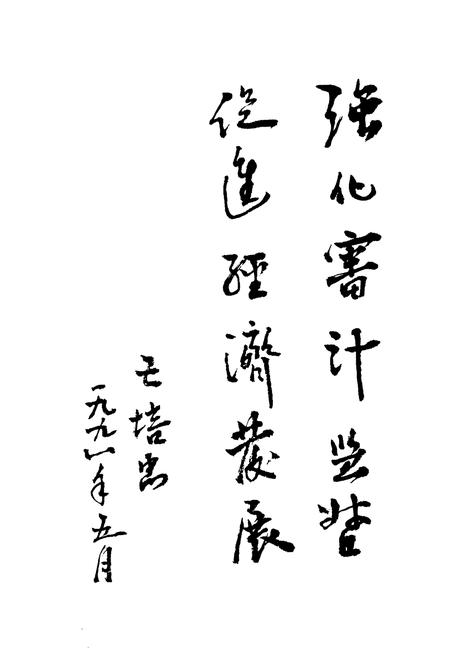 强化審計监督
促進經濟發展
王培忠
一九九八年五月